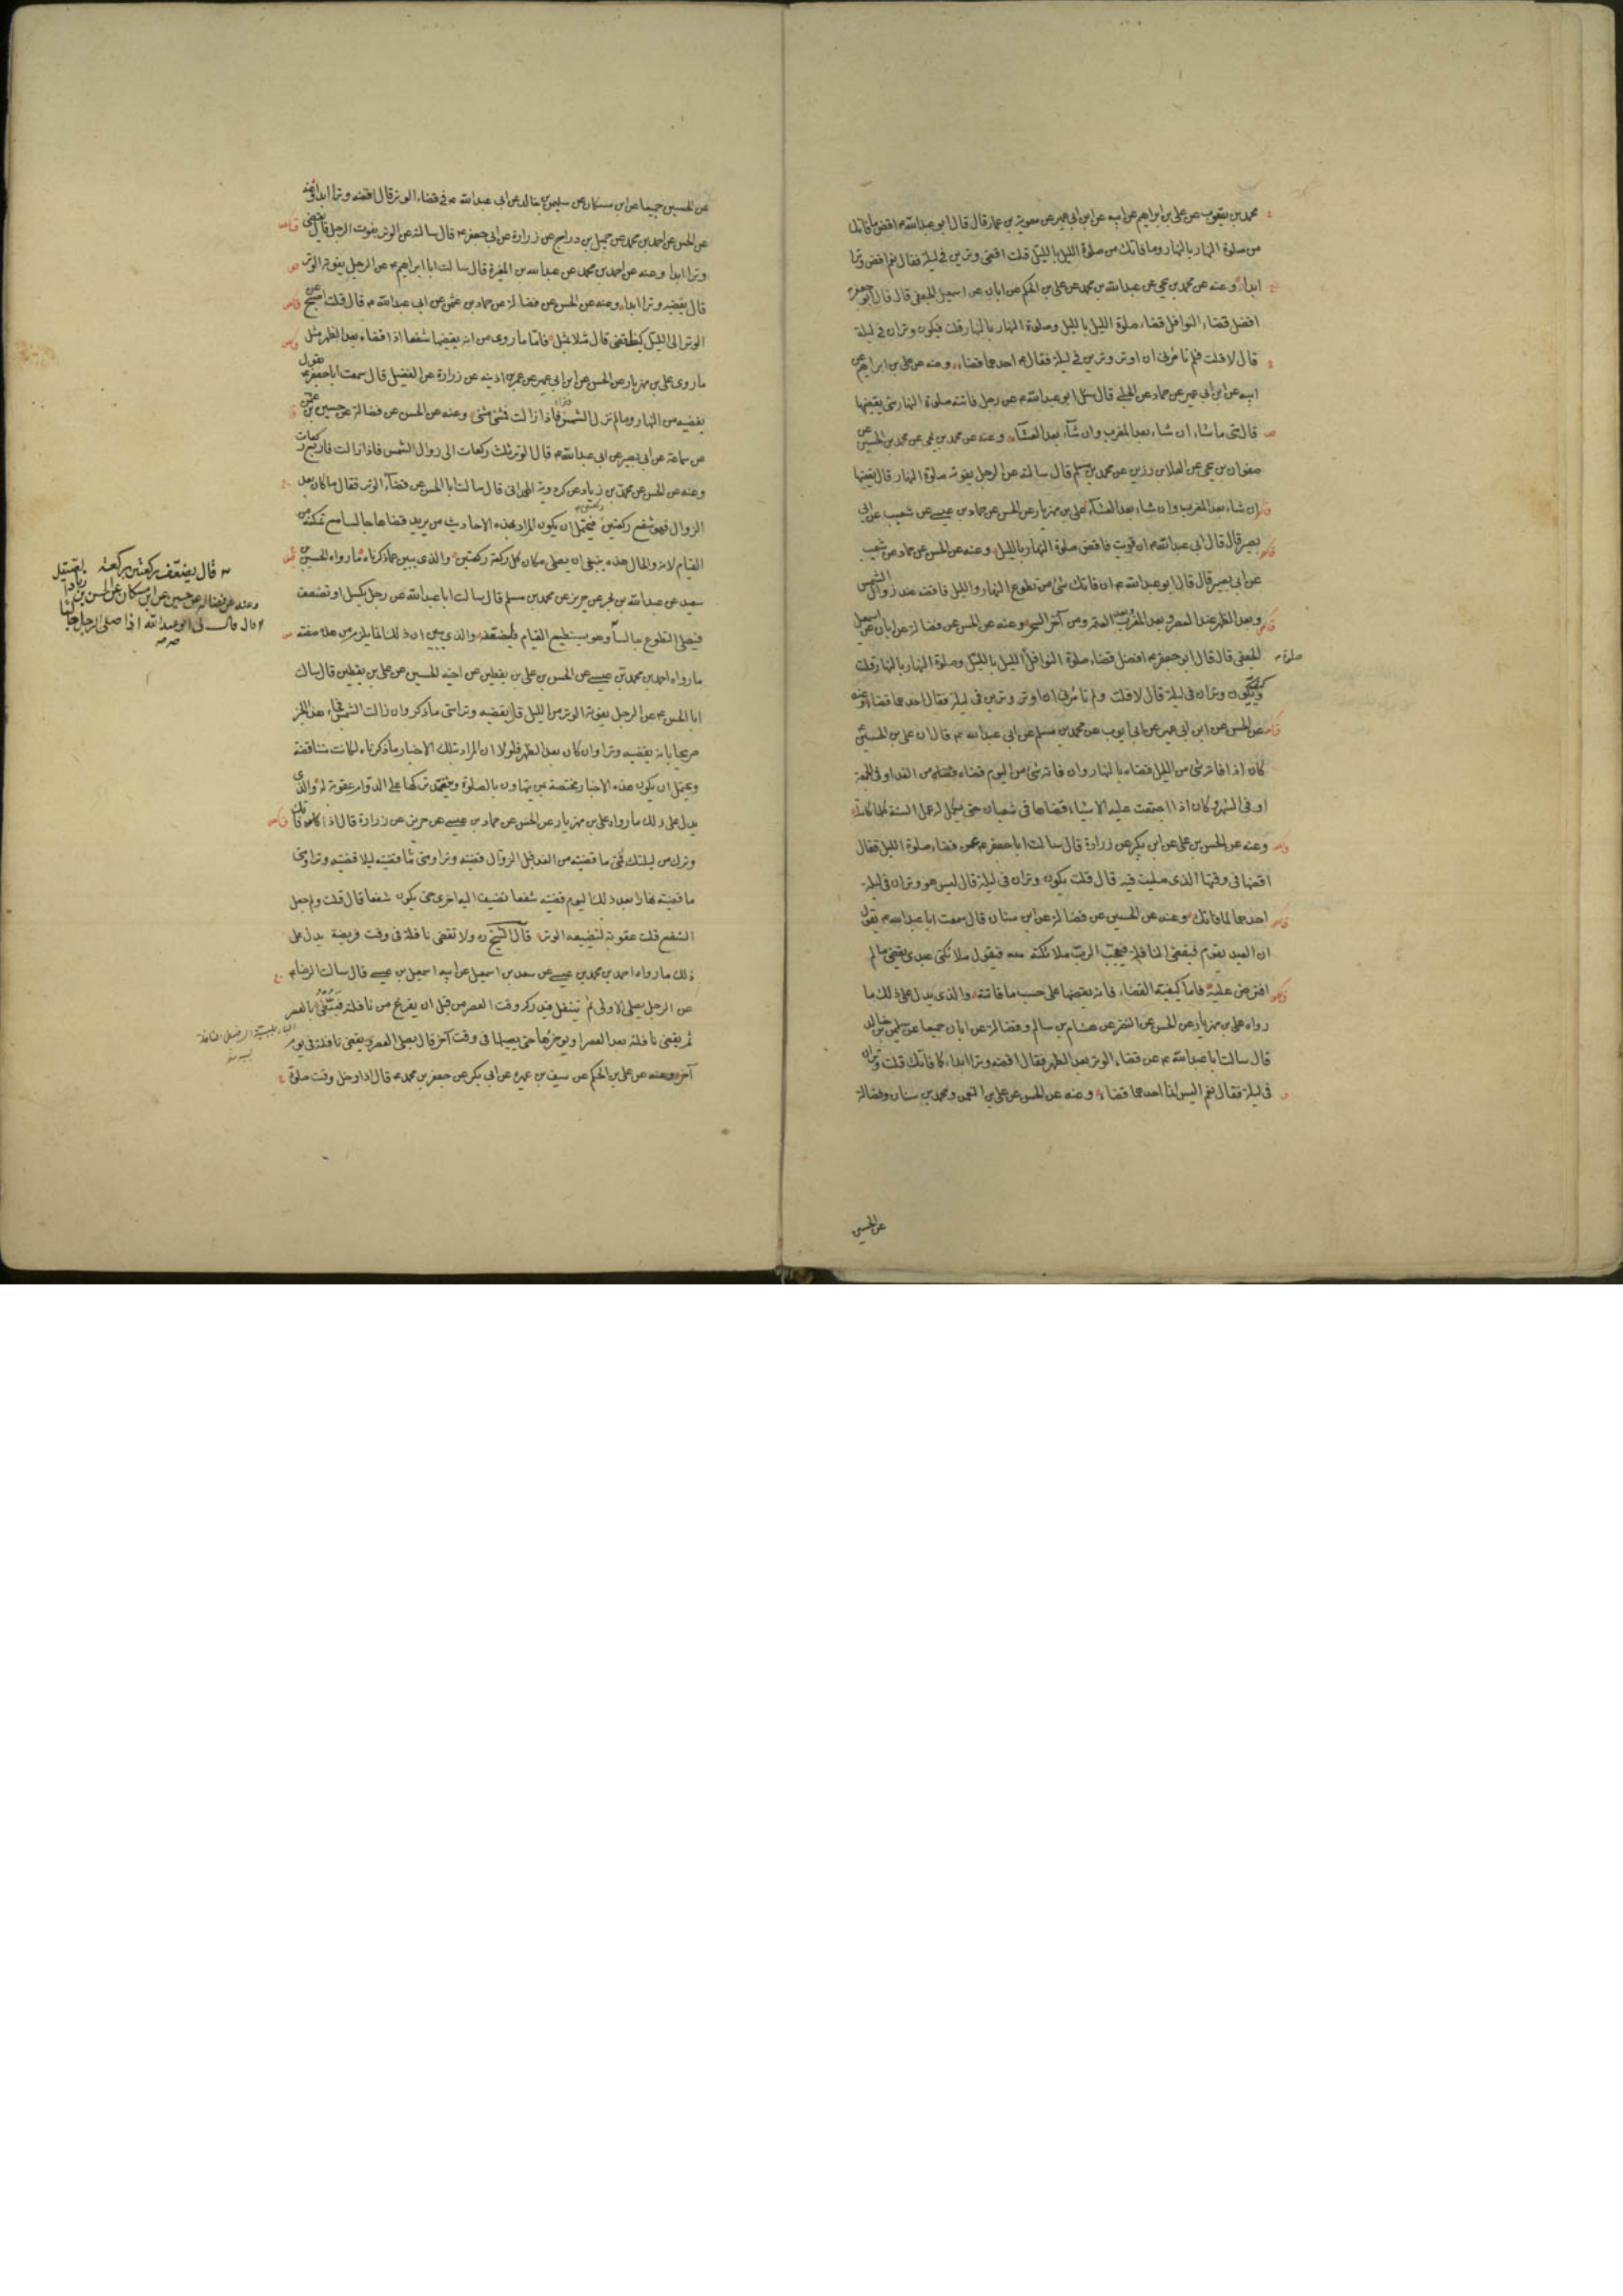 محمد بن يعقوب عن على بن ابراهيم عن ابيه عن ابن ابى عمير عن معوية بن عمار قال قال ابو عبدالله ع اقض ما فاتك
من صلوة النهار بالنهار وما فاتك من صلوة الليل بالليل قلت اقضى وترين فى ليلة فقال نعم اقض وترا
ابدا وعنه عن محمد بن يحيى عن عبدالله بن محمد عن على بن الحكم عن ابان عن اسمعيل الجعفى قال قال ابو جعفر ع
افضل قضاء النوافل قضاء صلوة الليل بالليل وصلوة النهار بالنهار قلت فيكون وتران فى ليلة
قال لا قلت فلم تأمرنى ان اوتر وترين فى ليلة فقال ع احدهما قضاء وعنه عن على بن ابراهيم عن
ابيه عن ابن ابى عمير عن حماد عن الحلبى قال سئل ابو عبدالله ع عن رجل فاتته صلوة النهار متى يقضيها
قال متى ما شاء ان شاء بعد المغرب وان شاء بعد العشاء وعنه عن محمد بن يحيى عن محمد بن الحسين عن
صفوان بن يحيى عن العلا بن رزين عن محمد بن مسلم قال سالته عن الرجل يفوته صلوة النهار قال يقضيها
ان شاء بعد المغرب وان شاء بعد العشاء على بن مهزيار عن الحسن عن حماد بن عيسى عن شعيب عن ابى
بصير قال قال ابى عبدالله ع ان قويت فاقض صلوة النهار بالليل وعنه عن الحسن عن حماد عن شعيب
عن ابى بصير قال قال ابو عبدالله ع ان فاتك شئ من تطوع النهار والليل فاقضه عند زوال الشمس
وبعد الظهر عند العصر وبعد المغرب وبعد العتمة ومن آخر السحر وعنه عن الحسن عن فضالة عن ابان عن اسمعيل
الجعفى قال قال ابو جعفر ع افضل قضاء صلوة النوافل الليل بالليل وصلوة النهار بالنهار قلت
صلوة
ويكون وتران فى ليلة قال لا قلت ولم تأمرنى ان اوتر وترين فى ليلة فقال احدهما قضاء وعنه
عن الحسن عن ابن ابى عمير عن ابى ايوب عن محمد بن مسلم عن ابى عبدالله ع قال ان على بن الحسين ع
كان اذا فاته شئ من الليل قضاه بالنهار وان فاته شئ من اليوم قضاه من الغد او فى الجمعة
او فى الشهر وكان اذا اجتمعت عليه الاشياء قضاها فى شعبان حتى يكمل له عمل السنة كلها كاملة
وعنه عن الحسن بن على عن ابن بكير عن زرارة قال سالت ابا جعفر ع عن قضاء صلوة الليل فقال
اقضها فى وقتها الذى صليت فيه قال قلت يكون وتران فى ليلة قال ليس هو وتران فى ليلة
احدهما لما فاتك وعنه عن الحسين عن فضالة عن ابن سنان قال سمعت ابا عبدالله ع يقول
ان العبد يقوم فيقضى النافلة فيعجب الرب ملائكته منه فيقول ملائكتى عبدى يقضى ما لم
افترض عليه فاما كيفية القضاء فانه يقضيها على حسب ما فاتته والذى يدل على ذلك ما
رواه على بن مهزيار عن الحسن عن النضر عن هشام بن سالم وفضالة عن ابان جميعا عن سليمن بن خالد
قال سالت ابا عبدالله ع عن قضاء الوتر بعد الظهر فقال اقضه وترا ابدا كما فاتك قلت وتران
فى ليلة فقال نعم اليس انما احدهما قضاء وعنه عن الحسن عن على بن النعمن ومحمد بن سنان وفضالة
عن الحسين
عن الحسين جميعا عن ابن مسكان عن سليمن بن خالد عن ابى عبدالله ع فى قضاء الوتر قال اقضه وترا ابدا وعنه
عن الحسن عن احمد بن محمد عن جميل بن دراج عن زرارة عن ابى جعفر ع قال سالته عن الوتر يفوت الرجل قال يقضى
وترا ابدا وعنه عن احمد بن محمد عن عبدالله بن المغيرة قال سالت ابا ابراهيم ع عن الرجل يفوته الوتر
قال يقضيه وترا ابدا وعنه عن الحسن عن فضالة عن حماد بن عثمن عن ابى عبدالله ع قال قلت اصبح عن
الوتر الى الليل كيف اقضى قال مثلا بمثل فاما ما روى من انه يقضيها شفعا اذا قضاه بعد الظهر مثل
ما روى على بن مهزيار عن الحسن عن ابن ابى عمير عن عمر بن اذينه عن زرارة عن الفضيل قال سمعت ابا جعفر ع يقول
يقضيه من النهار وما لم تزل الشمس وترا فاذا زالت فمثنى مثنى وعنه عن الحسن عن فضالة عن حسين بن عثمن
عن سماعة عن ابى بصير عن ابى عبدالله ع قال الوتر ثلث ركعات الى زوال الشمس فاذا زالت فاربع ركعات
وعنه عن الحسن عن محمد بن زياد عن كردويه الهمدانى قال سالت ابا الحسن عن قضاء الوتر فقال ما كان بعد
الزوال فهو شفع ركعتين ركعتين فيحتمل ان يكون المراد بهذه الاحاديث من يريد قضاها جالسا مع تمكنه من
القيام لانه والحال هذه ينبغى ان يصلى مكان كل ركعة ركعتين والذى يبين عما ذكرناه ما رواه الحسين بن
سعيد عن عبدالله بن بحر عن حريز عن محمد بن مسلم قال سالت ابا عبدالله عن رجل يكسل او تضعف
فيصلى التطوع جالسا وهو يستطيع القيام والذى يبين ان ذلك انما يلزم من هذه صفته
ما رواه احمد بن محمد بن عيسى عن الحسن بن على بن يقطين عن اخيه الحسين عن على بن يقطين قال سالت
ابا الحسن ع عن الرجل يفوته الوتر من الليل قال يقضيه وترا متى ما ذكر وان زالت الشمس فجاء هذا الخبر
صريحا بانه يقضيه وترا وان كان بعد الظهر فلولا ان المراد بتلك الاخبار ما ذكرناه لكانت متناقضة
ويحتمل ان يكون هذه الاخبار مختصة بمن يتهاون بالصلوة ويتعمد تركها على الدوام عقوبة له والذى
يدل على ذلك ما رواه على بن مهزيار عن الحسن عن حماد بن عيسى عن حريز عن زرارة قال اذا فاتك
وترك من ليلتك فمتى ما قضيته من الغد قبل الزوال قضيته وترا ومتى ما قضيته ليلا قضيته وترا ومتى
ما قضيته نهارا بعد ذلك اليوم قضيته شفعا تضيف اليه اخرى حتى يكون شفعا قال قلت ولم جعل
الشفع قلت عقوبة لتضييعه الوتر قال الشيخ ره ولا تقضى نافلة فى وقت فريضة يدل على
ذلك ما رواه احمد بن محمد بن عيسى عن سعد بن اسمعيل عن ابيه اسمعيل بن عيسى قال سالت الرضا ع
عن الرجل يصلى الاولى ثم يتنفل فيدركه وقت العصر من قبل ان يفرغ من نافلته بالعصر
ثم يقضى نافلته بعد العصر او يؤخرها حتى يصليها فى وقت آخر قال يصلى العصر ويقضى نافلته فى يوم
آخر وعنه عن على بن الحكم عن سيف بن عميرة عن ابى بكر عن جعفر بن محمد ع قال اذا دخل وقت صلوة
قال يضعف ركعتين بركعة
وعنه عن فضالة عن حسين عن ابن مسكان عن الحسن بن زياد
قال قال لى ابو عبدالله اذا صلى الرجل جالسا